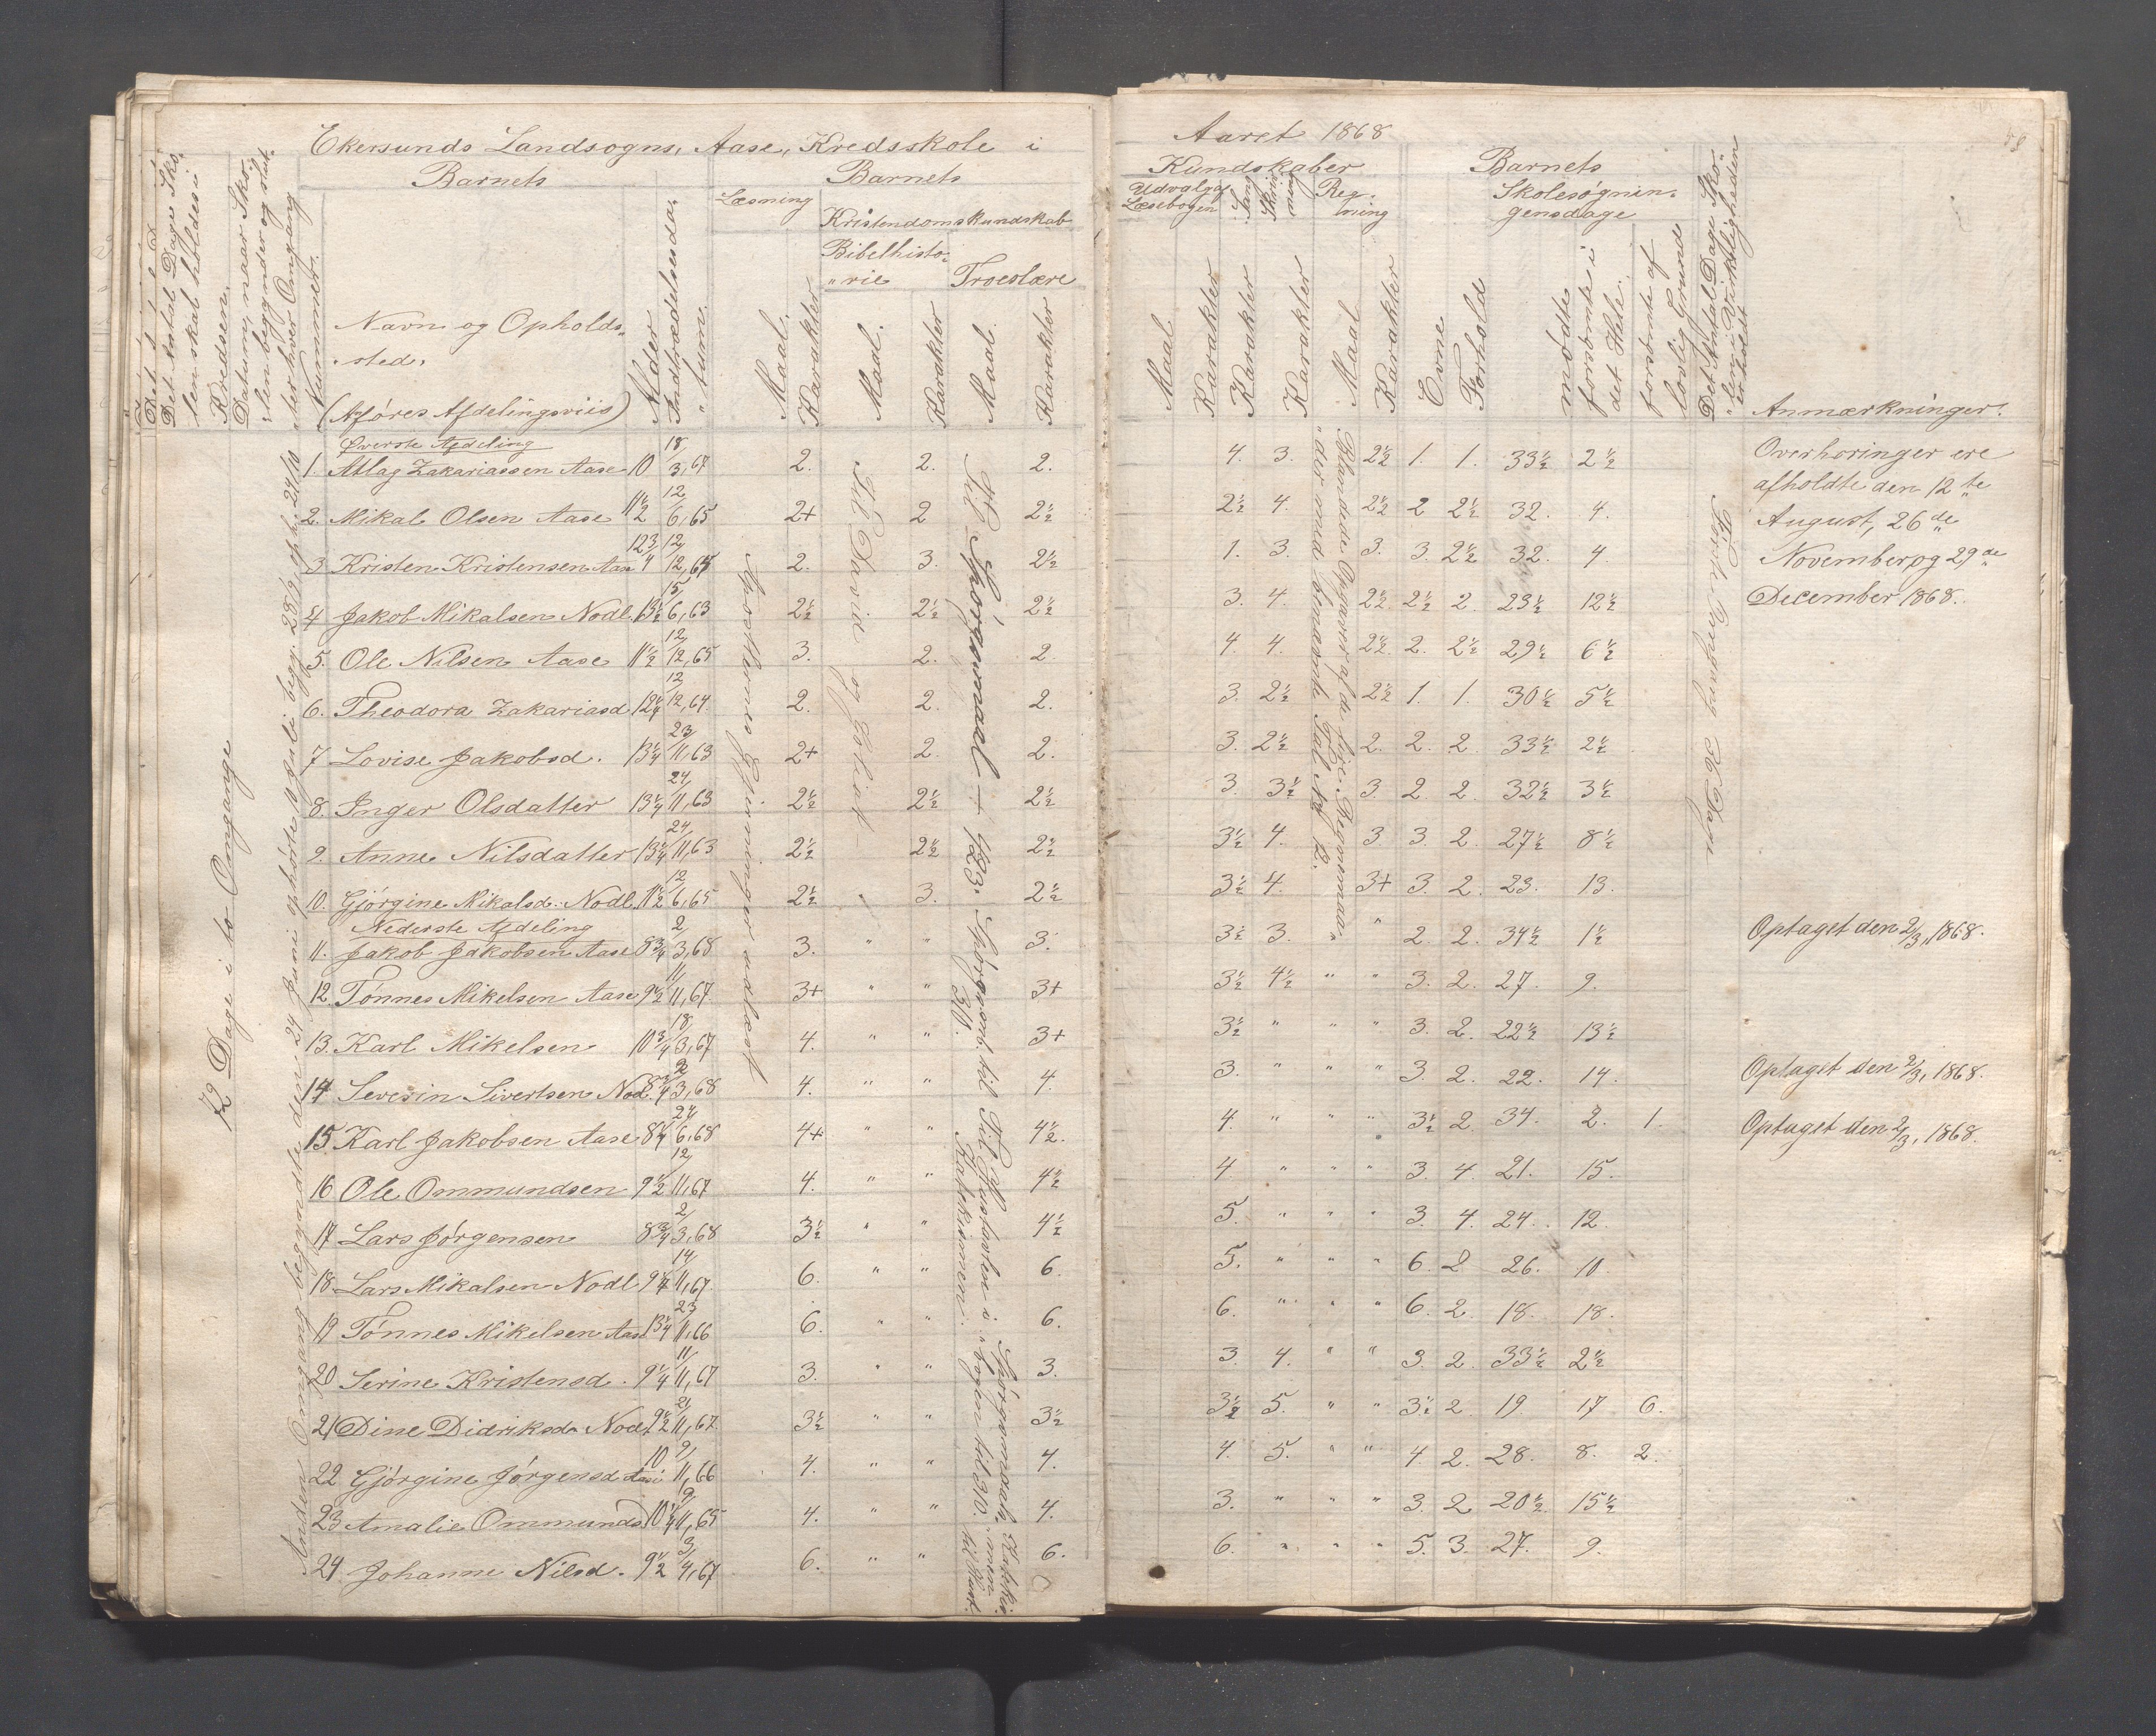 Ekersunds Landsogns, Aase, Kredsskole i Aaret 1868
Det Antal Dage Sko-
len skal holdes i
Kredsen.
Datum, naar Sko-
len begynder og slut-
ter hver Omgang
Nummer.
Barnets
Navn og Opholds-
sted.
(Aføres Afdelingsviis)
Alder
Indtrædelsesda-
tum.
Barnets
Læsning
Maal.
Karakter
Kristendomskundskab
Bibelhisto-
rie
Maal.
Karakter
Troeslære
Maal
Karakter
Kundskaber
Udvalg af
Læsebogen
Maal
Karakter
Sang
Karakter
Skriv-
ning
Karakter
Reg-
ning
Maal
Karakter
Barnets
Evne
Forhold
Skolesøgnin-
gensdage
mødte
forsømte i
det Hele.
forsømte af
lovlig Grund
Det Antal Dage Sko-
len i Virkeligheden
er holdt
Anmærkninger.
72 Dage i to Omgange
Anden Omgang begyndte den 24 Juni ophørte 10 Juli beg. 28/9, oph. 24/10
Apostlernes Gjerninger udlæst
Til David og Goliat
Til Spørgsmaal 423. Spørgsmb. til
310.
Til Hustavlen i
Katekismen.
Spørgsmaal
bogen til 310.
Blandede Opgaver af de fire Regnemaa-
der med benævnte Tal No 12.
36 Dage
Øverste Afdeling
1. Atlag Zakariassen Aase 10 18/3, 67 2. 2. 2. 4. 3. 2½ 1. 1. 33½ 2½
2. Mikal Olsen Aase 11½ 12/6, 65 2+ 2 2½ 2½ 4. 2½ 2 2½ 32. 4.
3 Kristen Kristensen Aase 12¾ 12/12, 64 2. 3. 2½ 1. 3. 3. 3. 2½ 32. 4.
4 Jakob Mikalsen Nodl. 13½ 15/6, 63 2½ 2½ 2½ 3. 4. 2½ 2½ 2. 23½ 12½
5. Ole Nilsen Aase 11½ 12/12, 65 3. 2. 2. 4. 4. 2½ 2. 2½ 29½ 6½
6. Theodora Zakariasd 12¼ 12/12, 64. 2. 2. 2. 3. 2½ 2½ 1. 1. 30½ 5½
7 Lovise Jakobsd. 13¼ 23/11, 63 2+ 2. 2. 3. 2½ 2. 2. 2. 33½ 2½
8. Inger Olsdatter 13¼ 24/11, 63 2½ 2½ 2½ 3. 3½ 3. 2. 2. 32½ 3½
9. Anne Nilsdatter 13¼ 24/11, 63 2½ 2½ 2½ 3½ 4. 3. 3. 2. 27½ 8½
10. Gjørgine Mikalsd. Nodl. 11½ 12/6, 65 2½ 3. 2½ 3½ 4. 3+ 3. 2. 23. 13.
Nederste Afdeling
11. Jakob Jakobsen Aase 8¾ 2/3, 68 3. " " 3. 3½ 3. " 2. 2. 34½ 1½ Optaget den 2/3, 1868.
12. Tønnes Mikelsen Aase 9½ 11/11, 67. 3+ " " 3+ 3½ 4½ " " 3. 2. 27. 9.
13. Karl Mikelsen 10¾ 18/3, 67 4. " " 3+ 3½ " " " 3. 2. 22½ 13½
14 Severin Sivertsen Nod. 8¾ 2/3, 68 4. " " 4. 3. " " " 3. 2. 22. 14. Optaget den 2/3, 1868.
15 Karl Jakobsen Aase 8¼ 24/6, 68 4+ " " 4½. 4. " " " 3½ 2. 34. 2. 1. Optaget den 2/3, 1868.
16 Ole Ommundsen 9½ 12/11, 67 4. " " 4½ 4. " " " 3. 4. 21. 15.
17 Lars Jørgensen 8¾ 2/3, 68 3½ " " 4½ 5. " " " 3. 4. 24. 12.
18. Lars Mikalsen Nodl 9¼ 14/11, 67. 6. " " 6. 5. " " " 6. 2 26. 10
19 Tønnes Mikelsen Aase 13¼ 23/11, 66 6. " " 6. 6. " " " 6. 2. 18. 18.
20 Serine Kristensd. 9¼ 11/11, 67 3. " " 3. 3. 4. " " 3. 2. 33½ 2½
21 Dine Didriksd. Nodl 9½ 21/11, 67. 3½ " " 3½ 3½ 5. " " 3½ 2. 19 17 6.
22 Gjørgine Jørgensd Aase 10 9/11, 66 4. " " 4. 4. 5. " " 4. 2. 28. 8. 2.
23 Amalie Ommundsd 10¼ 9/11, 65 4. " " 4. 3. " " " 3. 2 20½. 15½
24 Johanne Nilsd. 9½ 3/4, 67 6. " " 6. 6. " " " 5. 3. 27. 9.
Overhøringer ere
afholdte den 12te
August, 26de
November og 29de
December 1868.